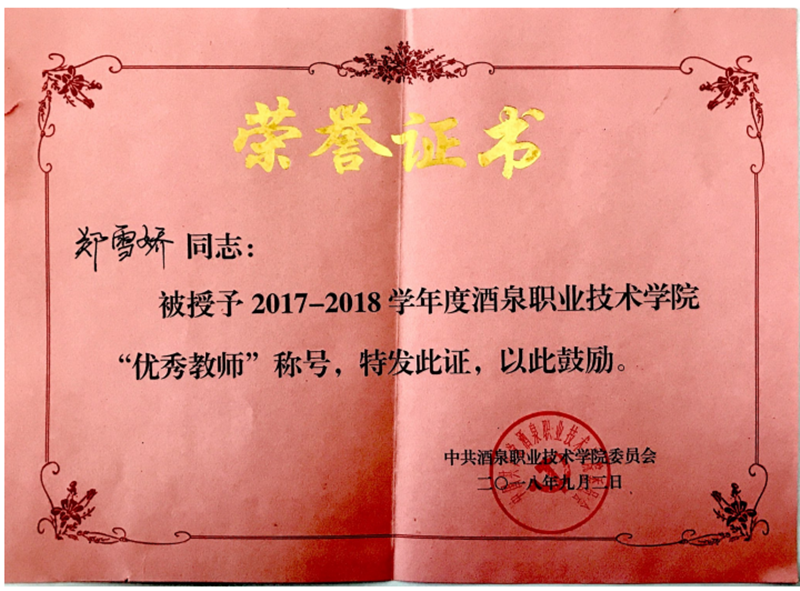 荣誉证书
郑雪娇 同志：
被授予 2017-2018 学年度酒泉职业技术学院
“优秀教师”称号，特发此证，以此鼓励。
中共酒泉职业技术学院委员会
二〇一八年九月二日